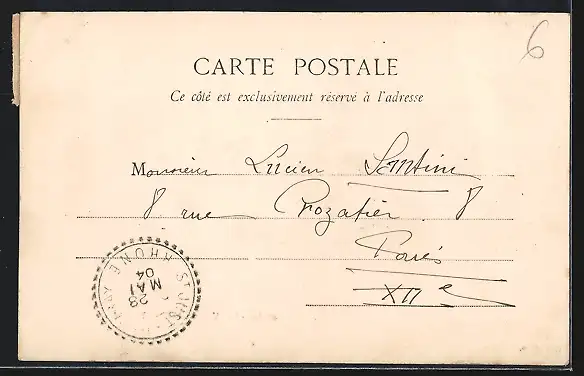 6
CARTE POSTALE
Ce côté est exclusivement réservé à l'adresse
Monsieur Lucien Santini
8 rue Crozatier 8
Paris
XII e
RHONE
28
MAI
04